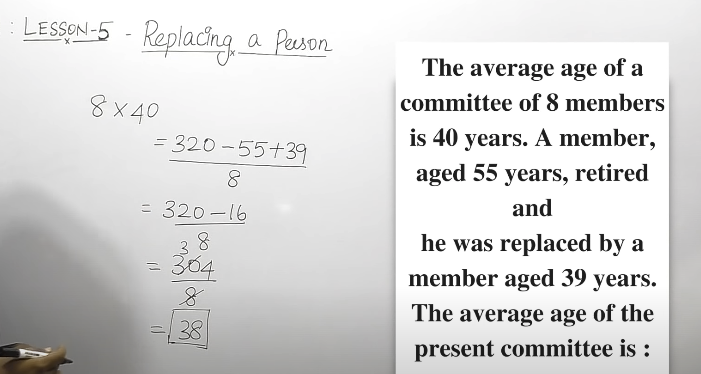 : LESSON-5 - Replacing a Person
8 × 40
= 320 - 55 + 39
8
= 320 - 16
8
3
= 304
8
= 38
The average age of a
committee of 8 members
is 40 years. A member,
aged 55 years, retired
and
he was replaced by a
member aged 39 years.
The average age of the
present committee is :